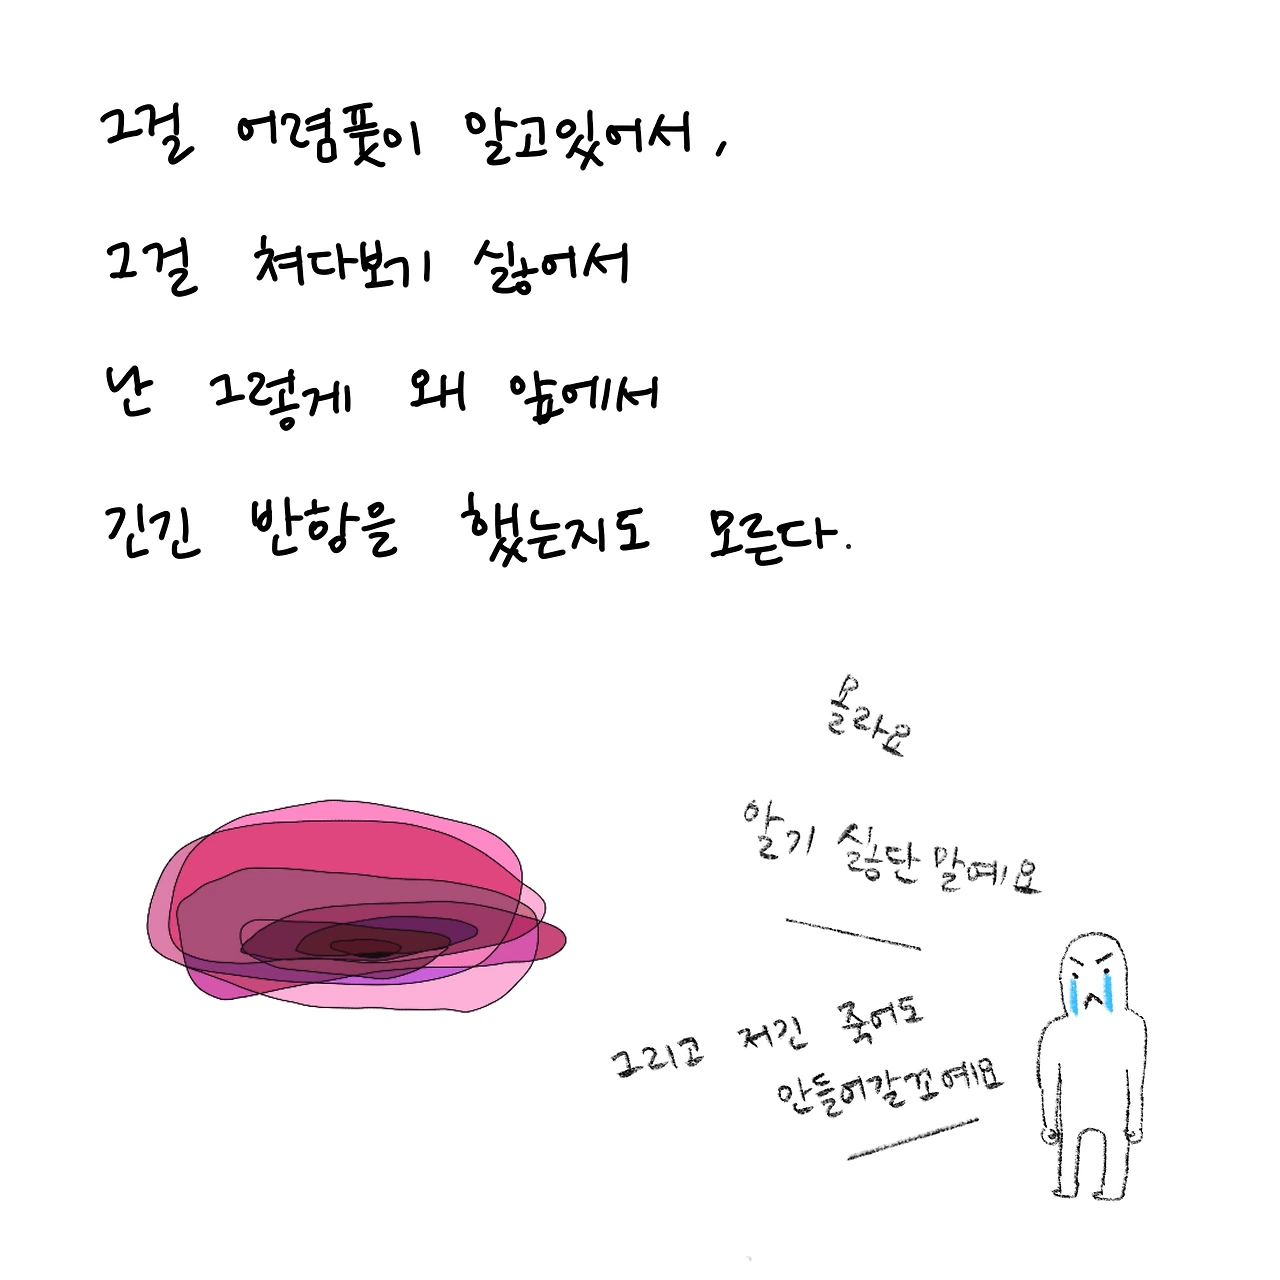 그걸 어렴풋이 알고있어서,
그걸 쳐다보기 싫어서
난 그렇게 왜 앞에서
긴긴 반항을 했는지도 모른다.
몰라요
알기 싫단 말예요
그리고 저긴 죽어도
안들어갈꼬예요